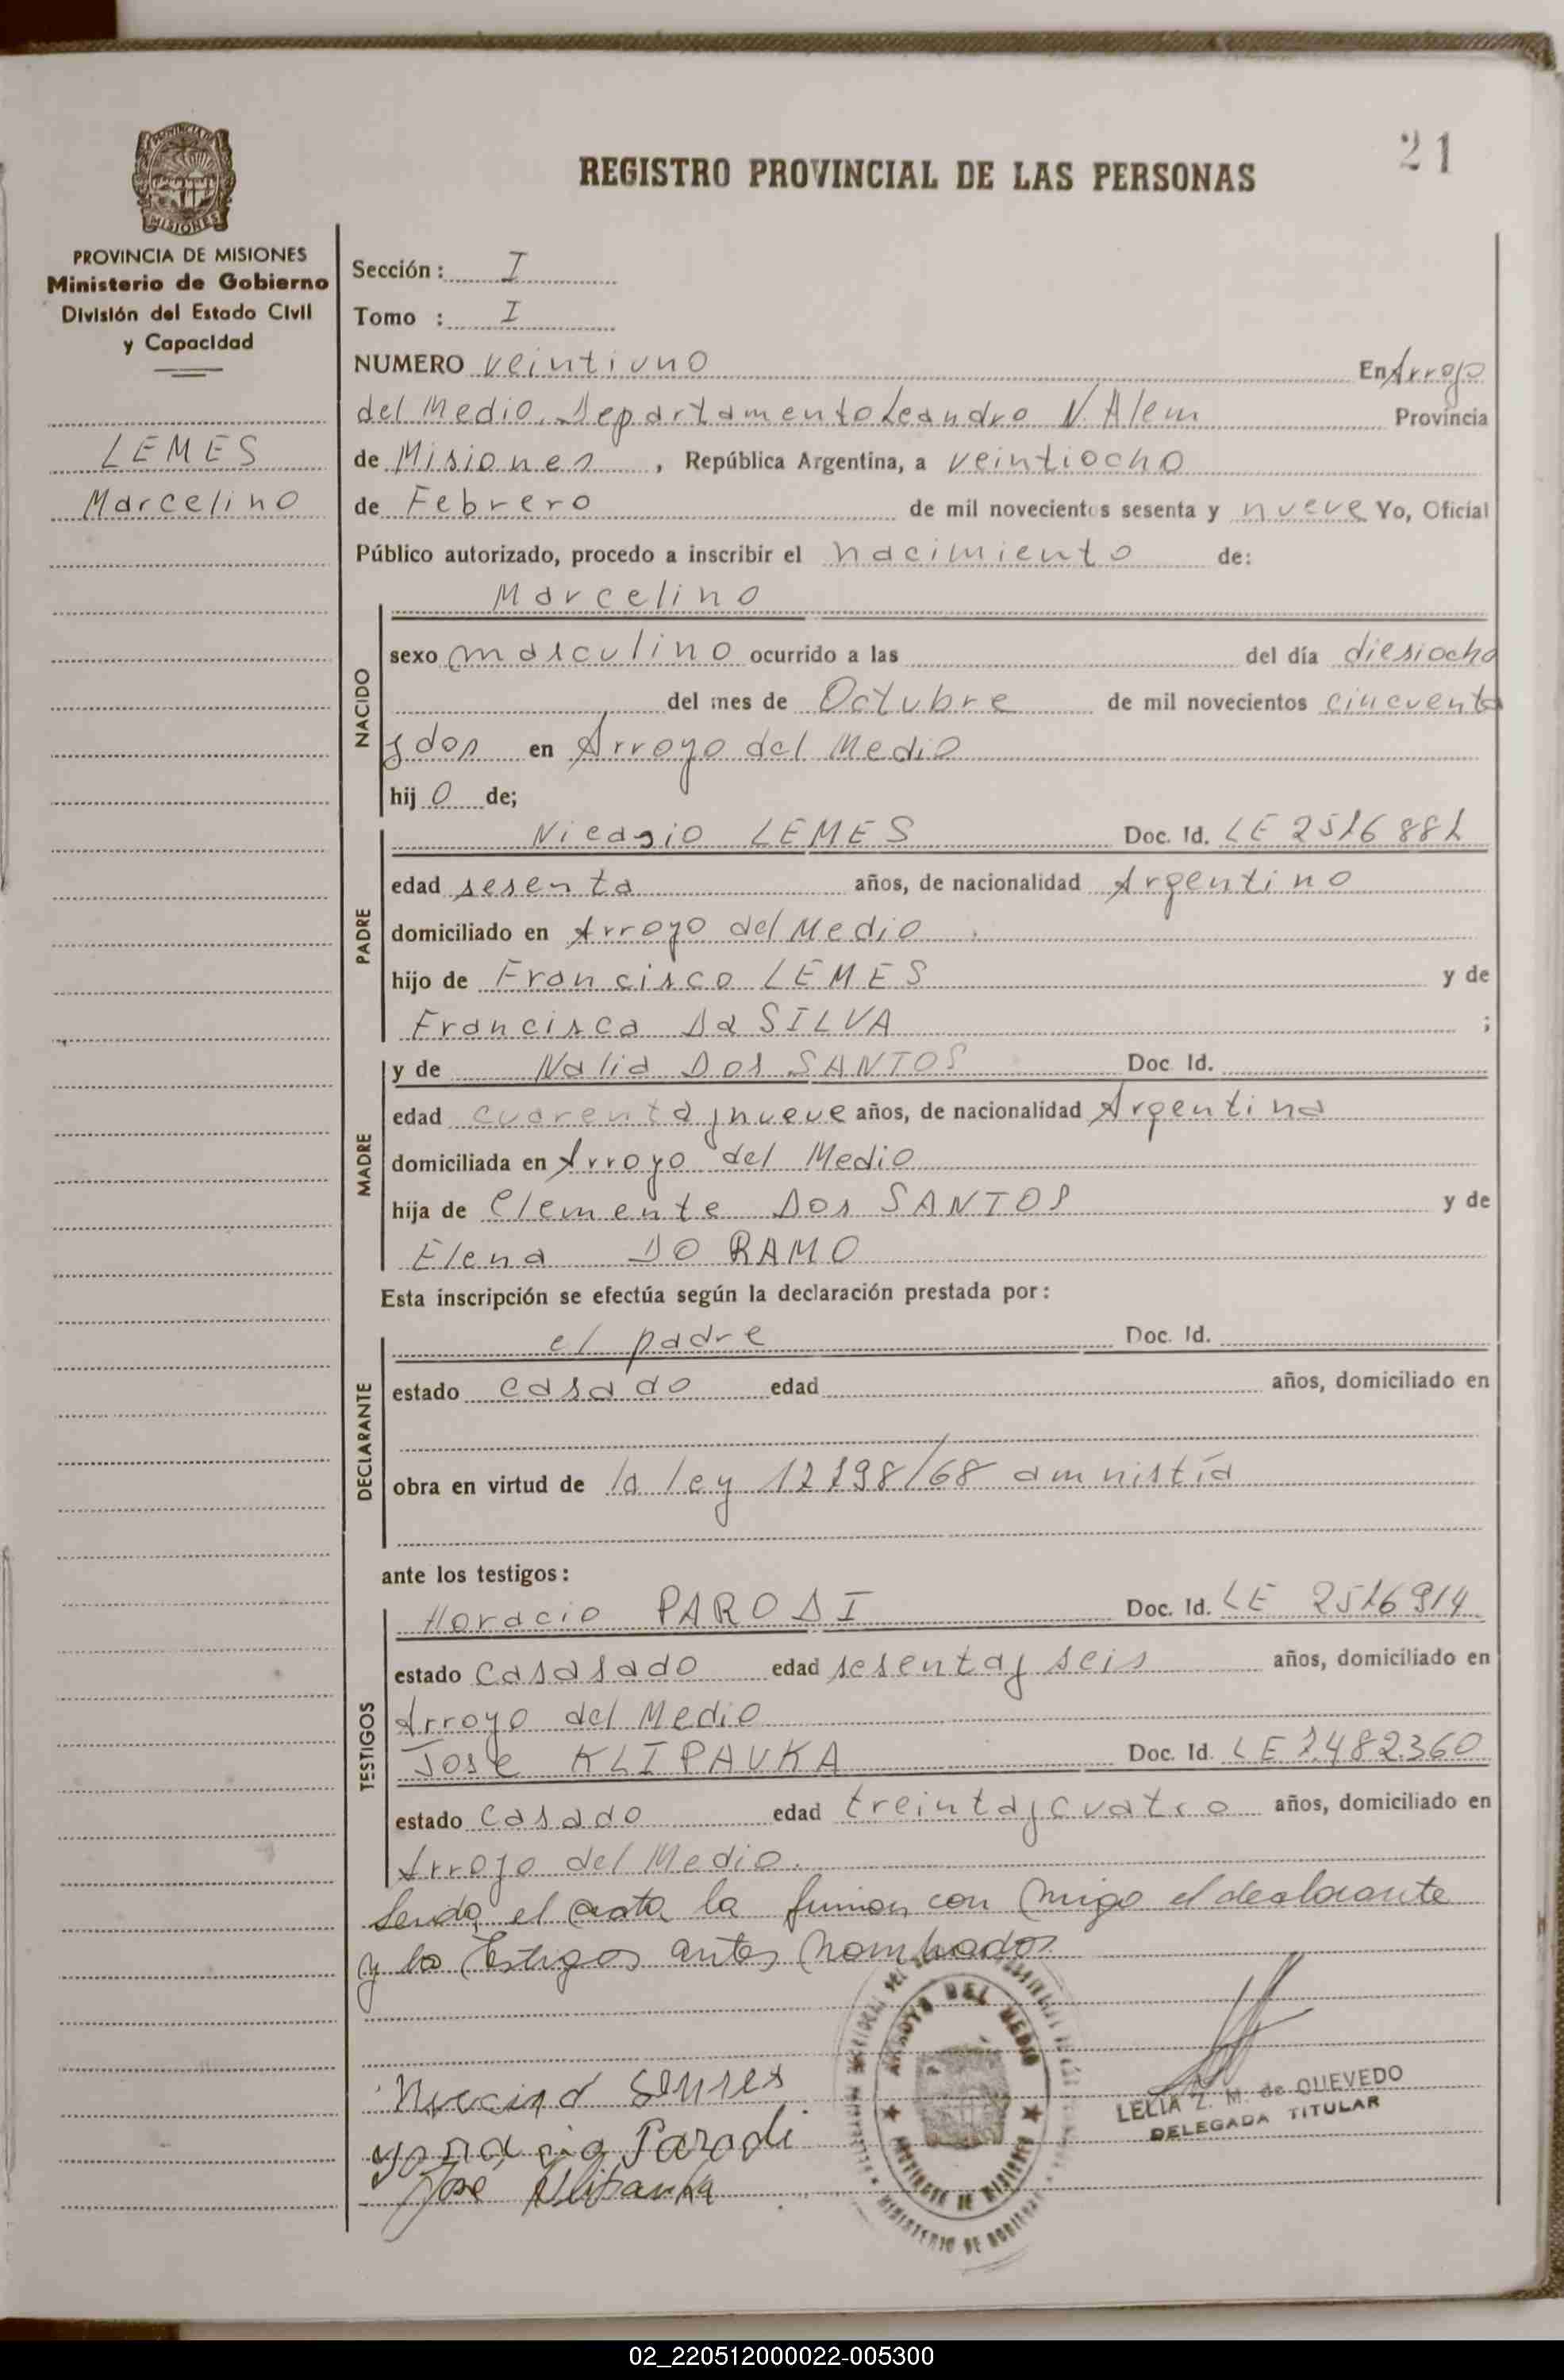 21
REGISTRO PROVINCIAL DE LAS PERSONAS
PROVINCIA DE MISIONES
Ministerio de Gobierno
División del Estado Civil
y Capacidad
LEMES
Marcelino
Sección: I
Tomo : I
NUMERO veintiuno En Arroyo
del Medio, Departamento Leandro N. Alem Provincia
de Misiones, República Argentina, a veintiocho
de Febrero de mil novecientos sesenta y nueve Yo, Oficial
Público autorizado, procedo a inscribir el nacimiento de:
NACIDO
Marcelino
sexo masculino ocurrido a las del día diesiocho
del mes de Octubre de mil novecientos cincuenta
y dos en Arroyo del Medio
hij o de;
PADRE
Nicasio LEMES Doc. Id. LE 2516881
edad sesenta años, de nacionalidad Argentino
domiciliado en Arroyo del Medio
hijo de Francisco LEMES y de
Francisca Da SILVA ;
MADRE
y de Nalia Dos SANTOS Doc. Id.
edad cuarenta y nueve años, de nacionalidad Argentina
domiciliada en Arroyo del Medio
hija de Clemente Dos SANTOS y de
Elena DO RAMO
Esta inscripción se efectúa según la declaración prestada por:
DECLARANTE
el padre Doc. Id.
estado casado edad años, domiciliado en
obra en virtud de la ley 12198/68 amnistía
ante los testigos:
TESTIGOS
Horacio PARODI Doc. Id. LE 2516914
estado casasado edad sesenta y seis años, domiciliado en
Arroyo del Medio
Jose KLIPAUKA Doc. Id. LE 7.482.360
estado casado edad treinta y cuatro años, domiciliado en
Arroyo del Medio.
Leida el acta la firman con migo el declarante
y los testigos antes nombrados
Parodi
José Klipauka
ARROYO DEL MEDIO
PROVINCIA DE MISIONES
MINISTERIO DE GOBIERNO
LELIA Z. M. de QUEVEDO
DELEGADA TITULAR
02_220512000022-005300